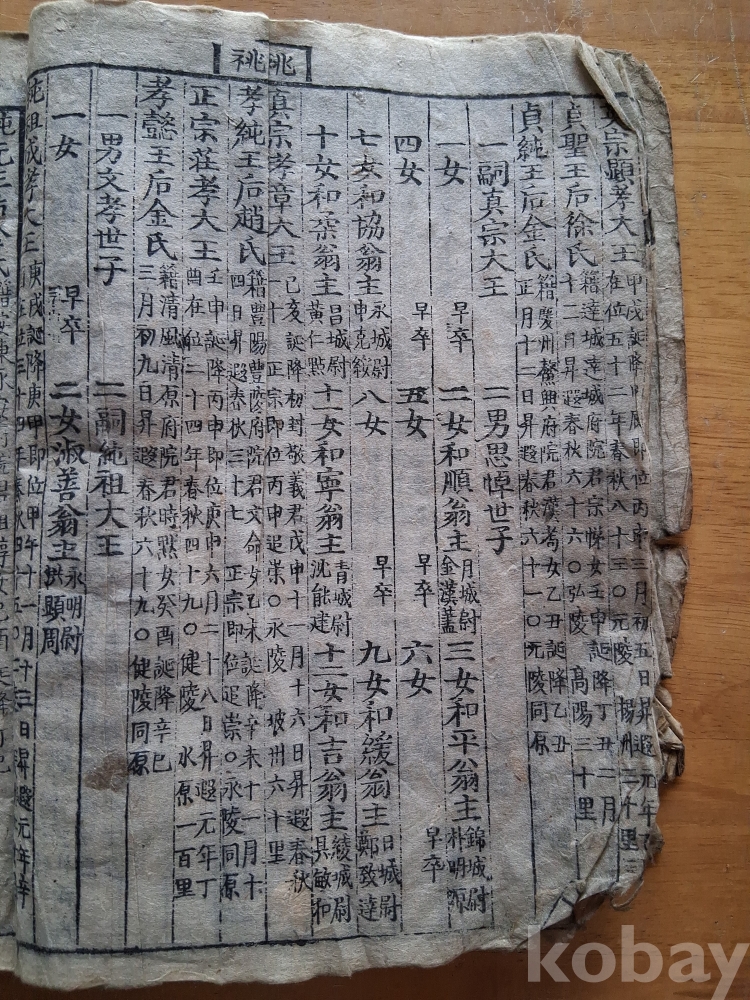 祧祧
宗顯孝大王 甲戌誕降甲辰即位丙申三月初五日昇遐元年
在位五十二年春秋八十三〇元陵 楊州三十里
貞聖王后徐氏 籍達城達城府院君宗悌女壬申誕降丁丑二月
十二日昇遐春秋六十六〇弘陵 高陽三十里
貞純王后金氏 籍慶州鰲興府院君漢耈女乙丑誕降乙丑
正月十二日昇遐春秋六十一〇元陵同原
一嗣真宗大王 二男思悼世子
一女 早卒 二女和順翁主 月城尉金漢藎 三女和平翁主 錦城尉朴明源
四女 早卒 五女 早卒 六女 早卒
七女和協翁主 永城尉申光綏 八女 早卒 九女和緩翁主 日城尉鄭致達
十女和柔翁主 昌城尉黃仁點 十一女和寧翁主 青城尉沈能建 十二女和吉翁主 綾城尉具敏和
真宗孝章大王 己亥誕降初封敬義君戊申十一月十六日昇遐春秋
一十 正宗即位丙申追崇〇永陵 坡州六十里
孝純王后趙氏 籍豐陽豐陵府院君文命女乙未誕降辛未十一月十
四日昇遐春秋三十七 正宗即位追崇〇永陵同原
正宗莊孝大王 壬申誕降丙申即位庚申六月二十八日昇遐元年丁
酉在位二十四年春秋四十九〇健陵 水原一百里
孝懿王后金氏 籍清風清原府院君時默女癸酉誕降辛巳
三月初九日昇遐春秋六十九〇健陵同原
一男文孝世子 二嗣純祖大王
一女 早卒 二女淑善翁主 永明尉洪顯周
純祖成孝大王 庚戌誕降庚申即位甲午十一月十三日昇遐元年辛
kobay